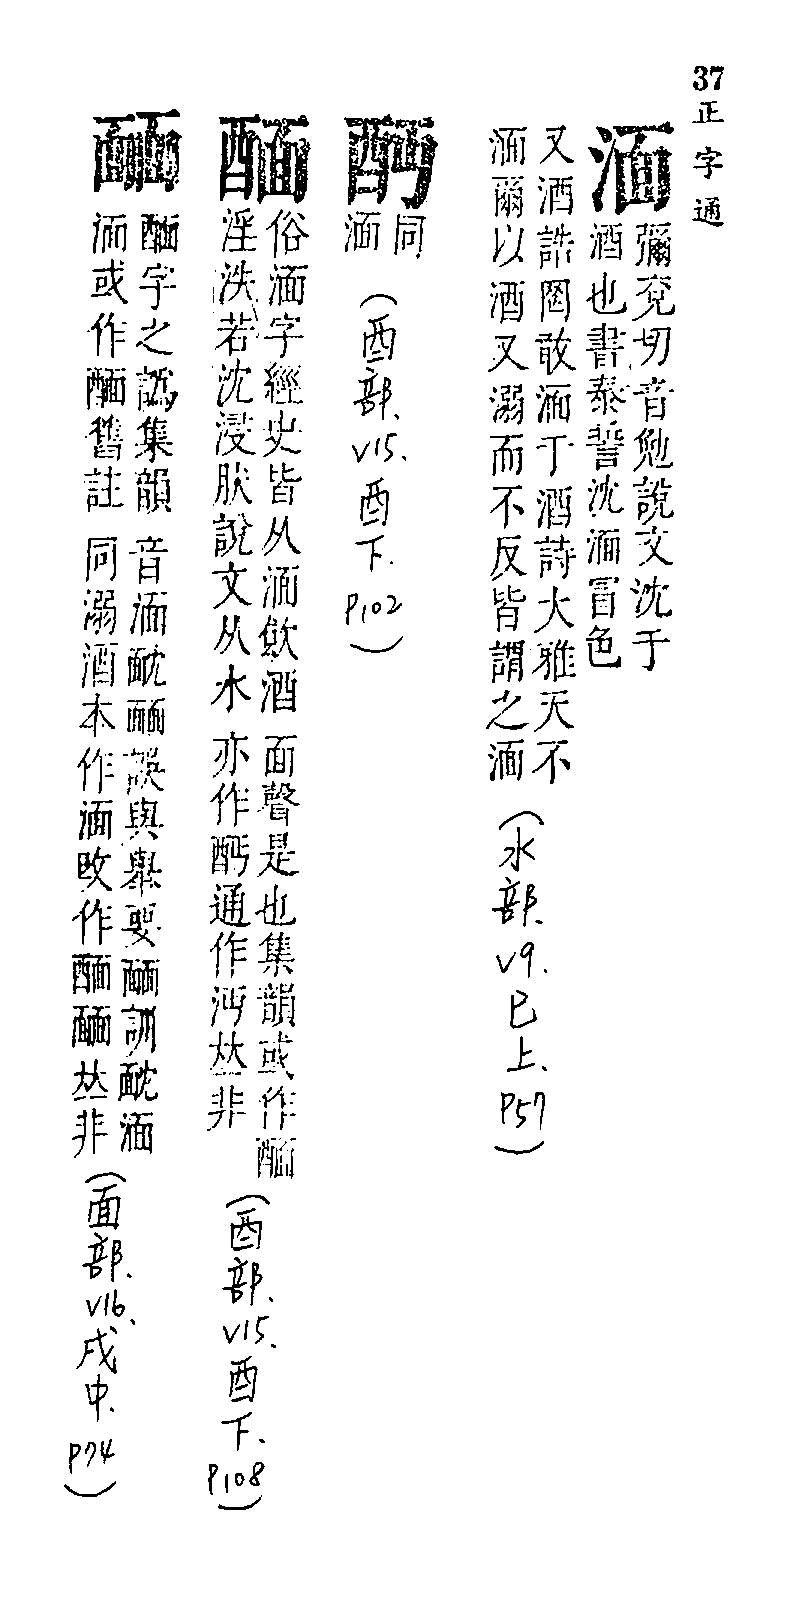 37正字通
湎 彌兗切音勉說文沈于
酒也書泰誓沈湎冒色
又酒誥罔敢湎于酒詩大雅天不
湎爾以酒又溺而不反皆謂之湎 (水部.V9.巳上.P57)
同
湎 (酉部.V15.酉下.P102)
俗湎字經史皆从湎飲酒 面聲是也集韻或作
淫泆若沈浸肰說文从水 亦作通作沔𠀤非 (酉部.V15.酉下.P108)
字之譌集韻 音湎誤與舉要訓湎
湎或作舊註 同溺酒本作湎改作𠀤非 (面部.V16.戌中.P74)